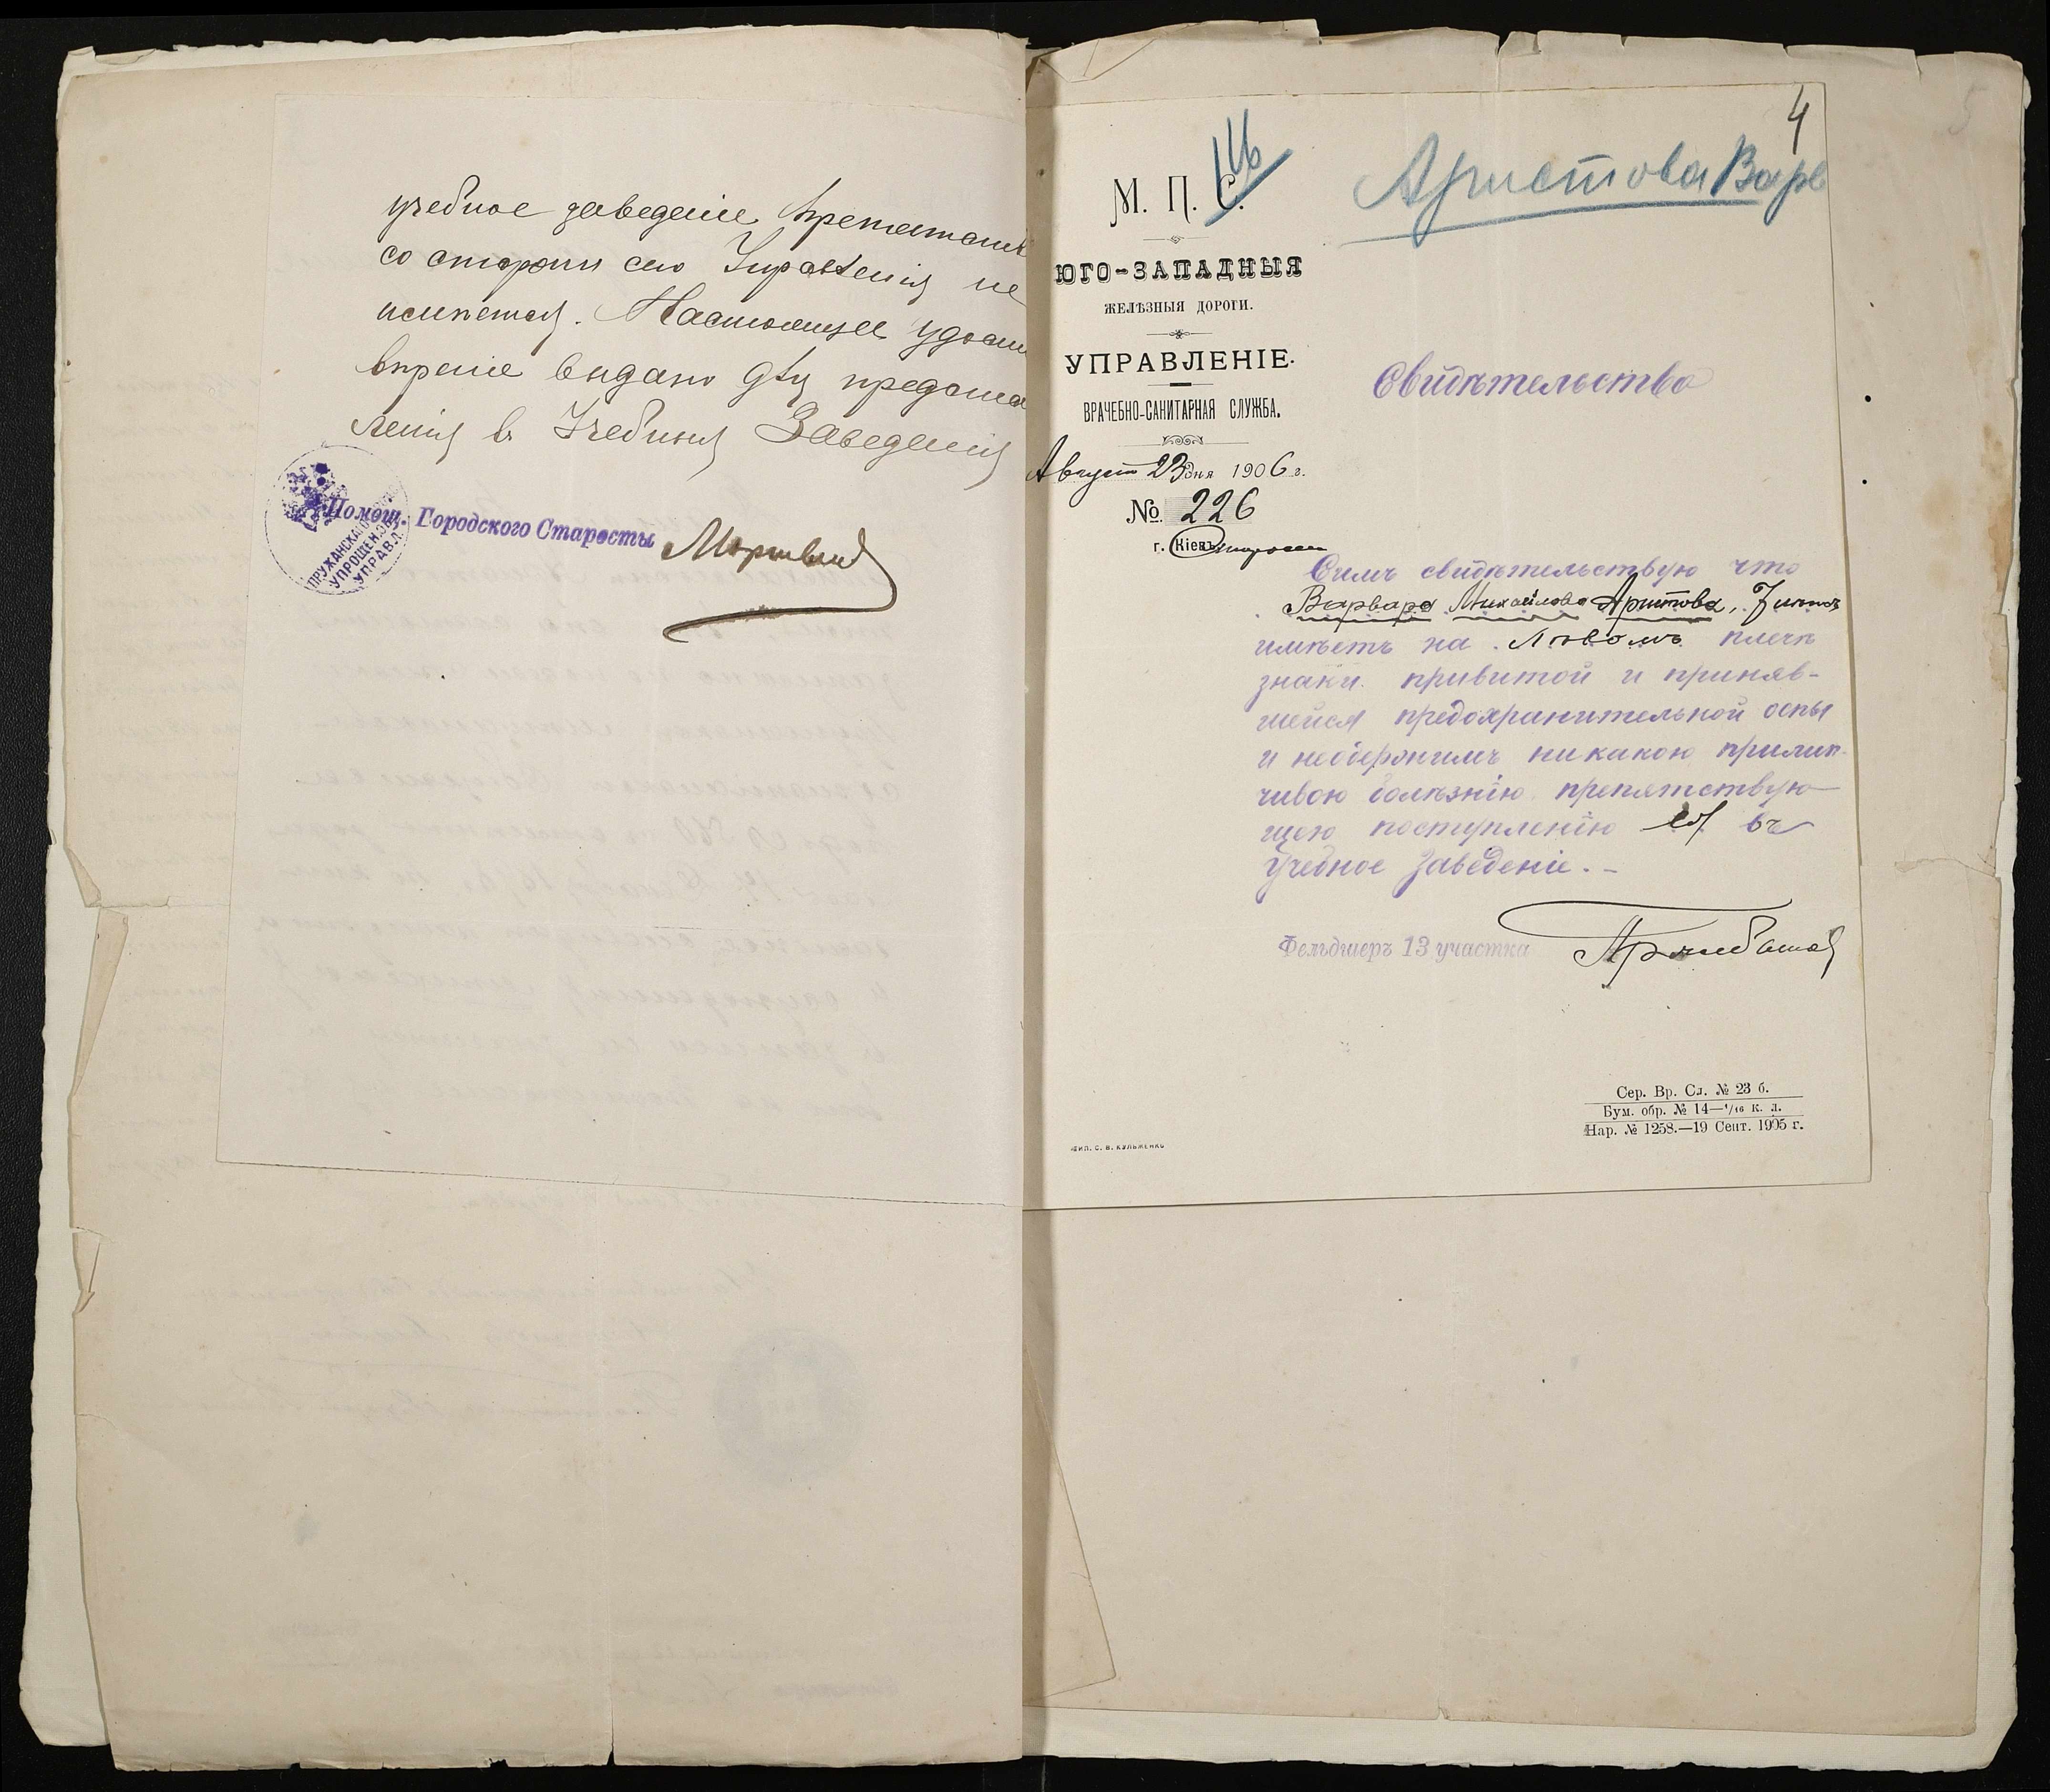 учебное заведеніе препятствій
со стороны сего Управленія не
имѣется. Настоящее удосто
вѣреніе выдано для представ
ленія въ Учебныя Заведенія
Помощ. Городского Старосты
ПРУЖАНСКАГО
УПРОЩЕН.
УПРАВЛ.
4
5
Аристова Варв
М. П. С.
ЮГО-ЗАПАДНЫЯ
ЖЕЛѢЗНЫЯ ДОРОГИ.
УПРАВЛЕНІЕ.
ВРАЧЕБНО-САНИТАРНАЯ СЛУЖБА.
Август 23 дня 1906 г.
№ 226
г. Кіевъ
Свидѣтельство
Симъ свидѣтельствую что
Варвара Михайлова Аристова, 7
имѣетъ на Лѣвомъ плечѣ
знаки привитой и приняв-
шейся предохранительной оспы
и необержимъ никакою прилип-
чивою болѣзнію препятствую-
щею поступленію ея въ
Учебное Заведеніе. -
Фельдшеръ 13 участка
Сер. Вр. Сл. № 23 б.
Бум. обр. № 14—1/16 к. л.
Нар. № 1258.—19 Сент. 1905 г.
ТИП. С. В. КУЛЬЖЕНКО